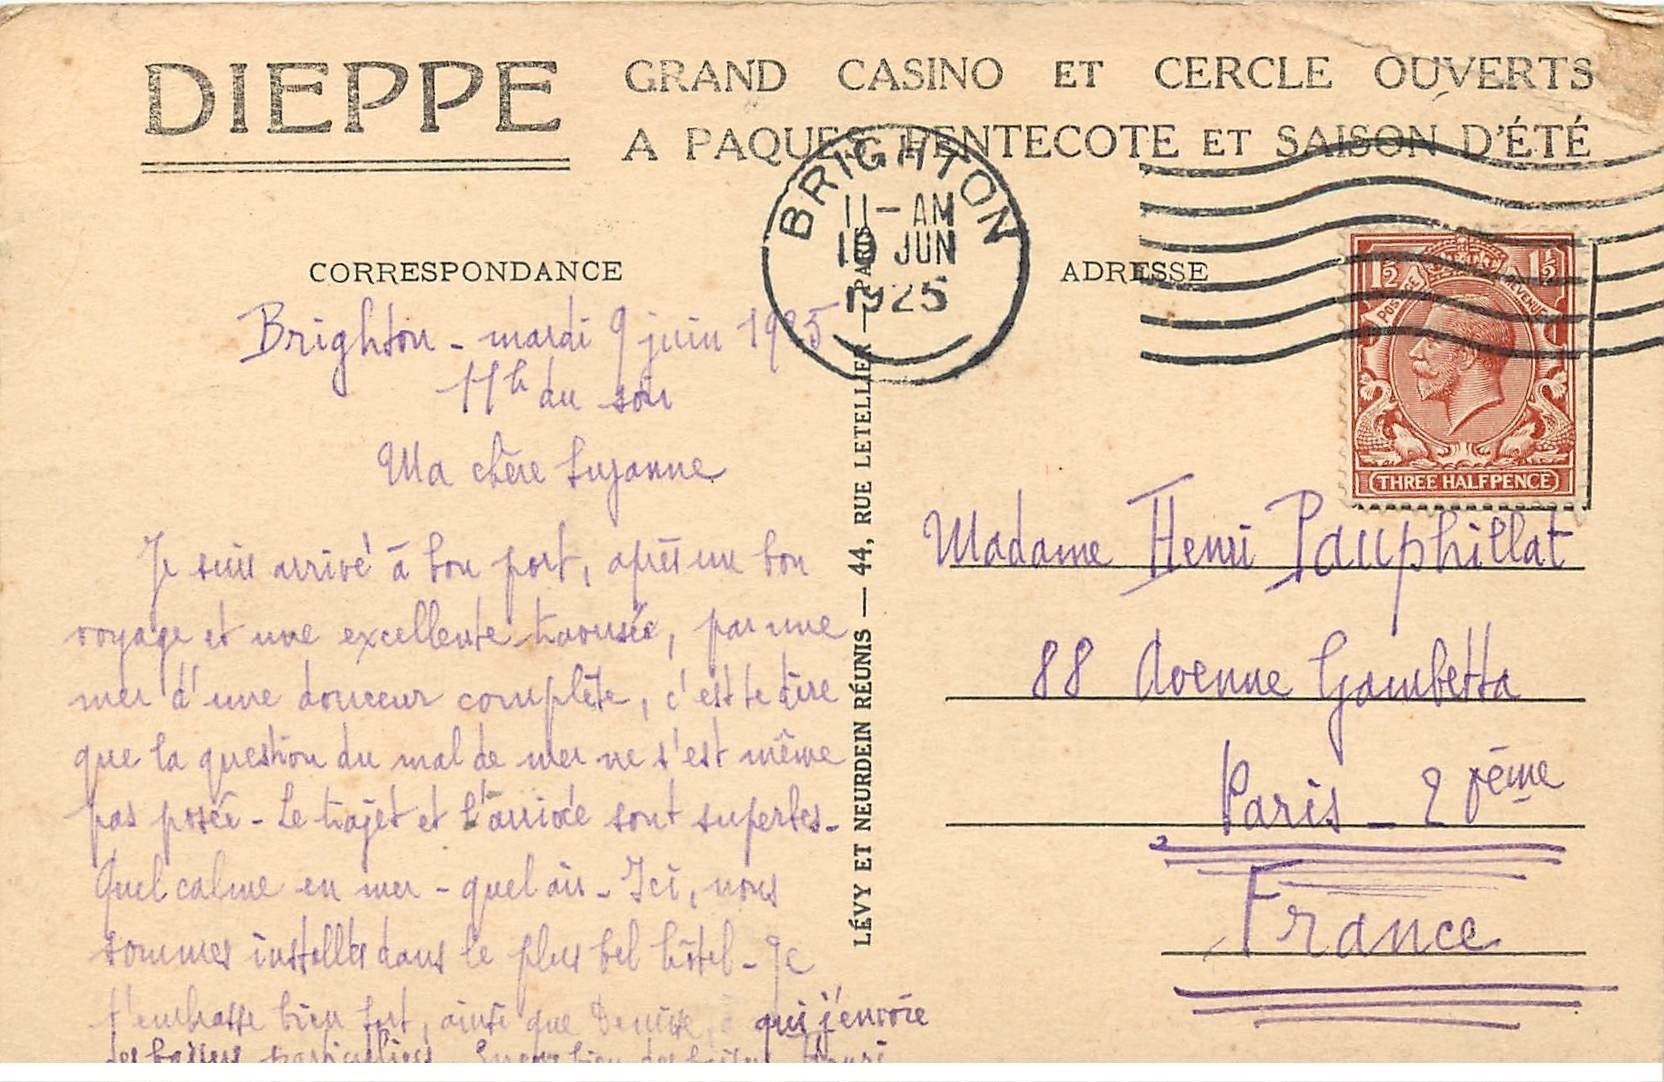 DIEPPE
GRAND CASINO ET CERCLE OUVERTS
A PAQUES PENTECOTE ET SAISON D'ÉTÉ
BRIGHTON
11 - AM
10 JUN
1925
CORRESPONDANCE
ADRESSE
1½ POSTAGE REVENUE 1½
THREE HALFPENCE
Brighton - mardi 9 juin 1925
11h du soir
Ma chère Suzanne
Je suis arrivé à bon port, après un bon
voyage et une excellente traversée, par une
mer d'une douceur complète, c'est te dire
que la question du mal de mer ne s'est même
pas posée - Le trajet et l'arrivée sont superbes -
Quel calme en mer - quel air - Ici, nous
sommes installés dans le plus bel hôtel - Je
t'embrasse bien fort, ainsi que Denise, à qui j'envoie
des baisers particuliers - Encore bien des baisers Henri
LÉVY ET NEURDEIN RÉUNIS — 44, RUE LETELLIER — PARIS
Madame Henri Pauphillat
88 Avenue Gambetta
Paris - 20ème
France